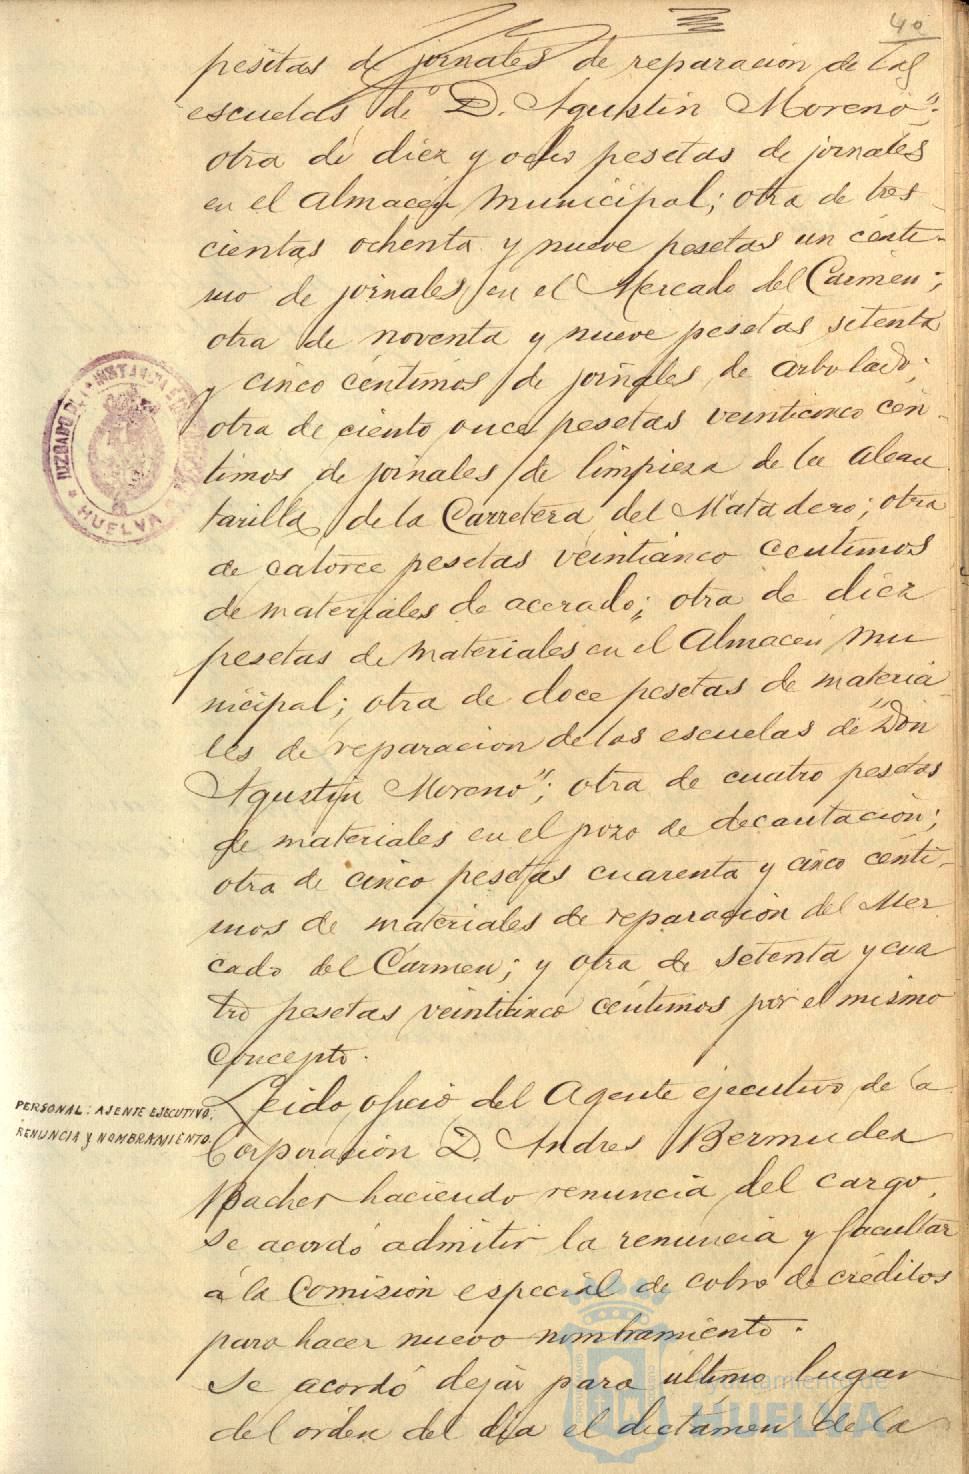 40
pesetas de jornales de reparación de las
escuelas de "D. Agustin Moreno";
otra de diez y ocho pesetas de jornales
en el Almacén Municipal; otra de tres-
cientas ochenta y nueve pesetas un cénti-
mo de jornales en el Mercado del Carmen;
otra de noventa y nueve pesetas setenta
y cinco céntimos de jornales de arbolado;
otra de ciento once pesetas veinticinco cén-
timos de jornales de limpieza de la alcan
tarilla de la Carretera del Matadero; otra
de catorce pesetas veinticinco centimos
de materiales de acerado; otra de diez
pesetas de materiales en el Almacén Mu
nicipal; otra de doce pesetas de materia-
les de reparacion de las escuelas de "Don
Agustin Moreno"; otra de cuatro pesetas
de materiales en el pozo de decantación;
otra de cinco pesetas cuarenta y cinco cénti-
mos de materiales de reparación del Mer
cado del Carmen; y otra de setenta y cua
tro pesetas veinticinco céntimos por el mismo
concepto.
PERSONAL: AJENTE EJECUTIVO.
RENUNCIA y NOMBRAMIENTO.
Leido oficio del Agente ejecutivo de la
Corporación D. Andres Bermudez
Pacher haciendo renuncia del cargo,
se acordó admitir la renuncia y facultar
á la Comisión especial de cobro de créditos
para hacer nuevo nombramiento.
Se acordó dejar para último lugar
del orden del dia el dictámen de la
JUZGADO DE 1ª INSTANCIA
HUELVA
Ayuntamiento de
HUELVA